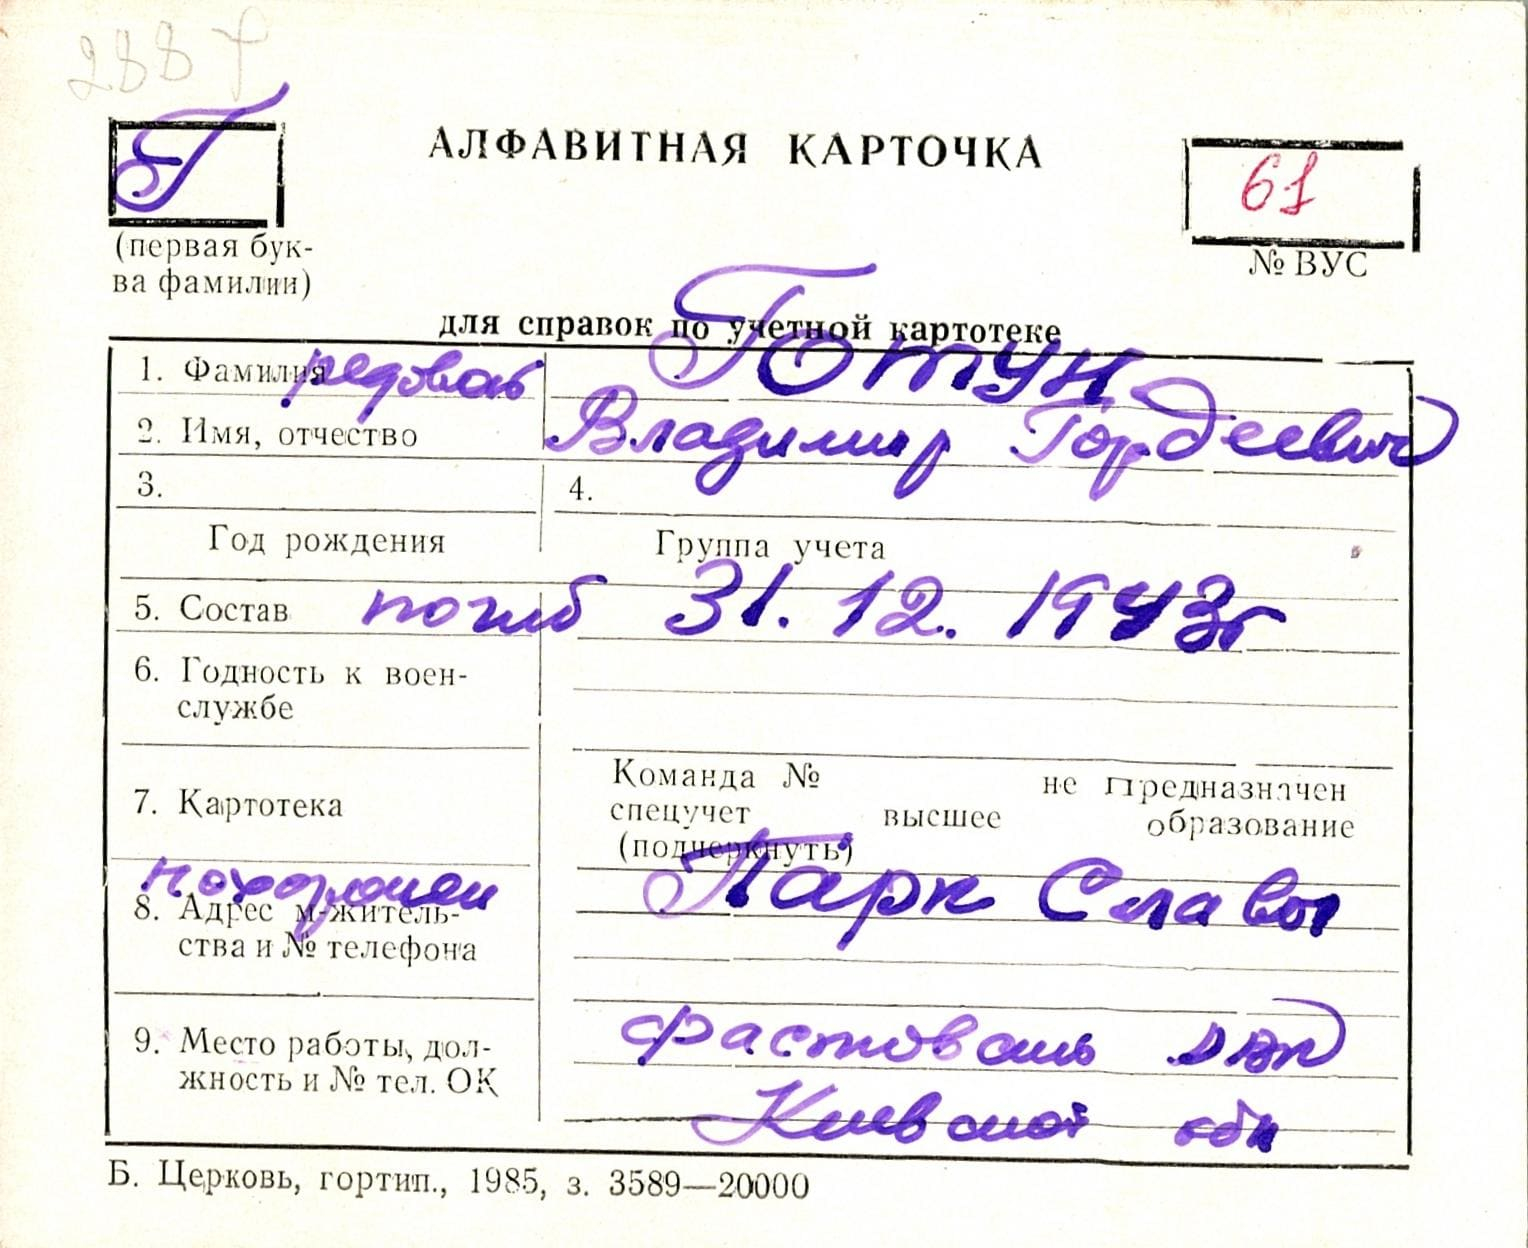 288 Г
Г
АЛФАВИТНАЯ КАРТОЧКА
61
(первая бук-
ва фамилии)
№ ВУС
для справок по учетной картотеке
1. Фамилия рядовой Готун
2. Имя, отчество Владимир Гордеевич
3. 4.
Год рождения Группа учета
5. Состав погиб 31.12.1943г
6. Годность к воен-
службе
7. Картотека
Команда № не предназначен
спецучет высшее образование
(подчеркнуть)
похоронен Парк Славы
8. Адрес м-житель-
ства и № телефона
9. Место работы, дол-
жность и № тел. ОК
Фастовский
Киевской обл
Б. Церковь, гортип., 1985, з. 3589—20000